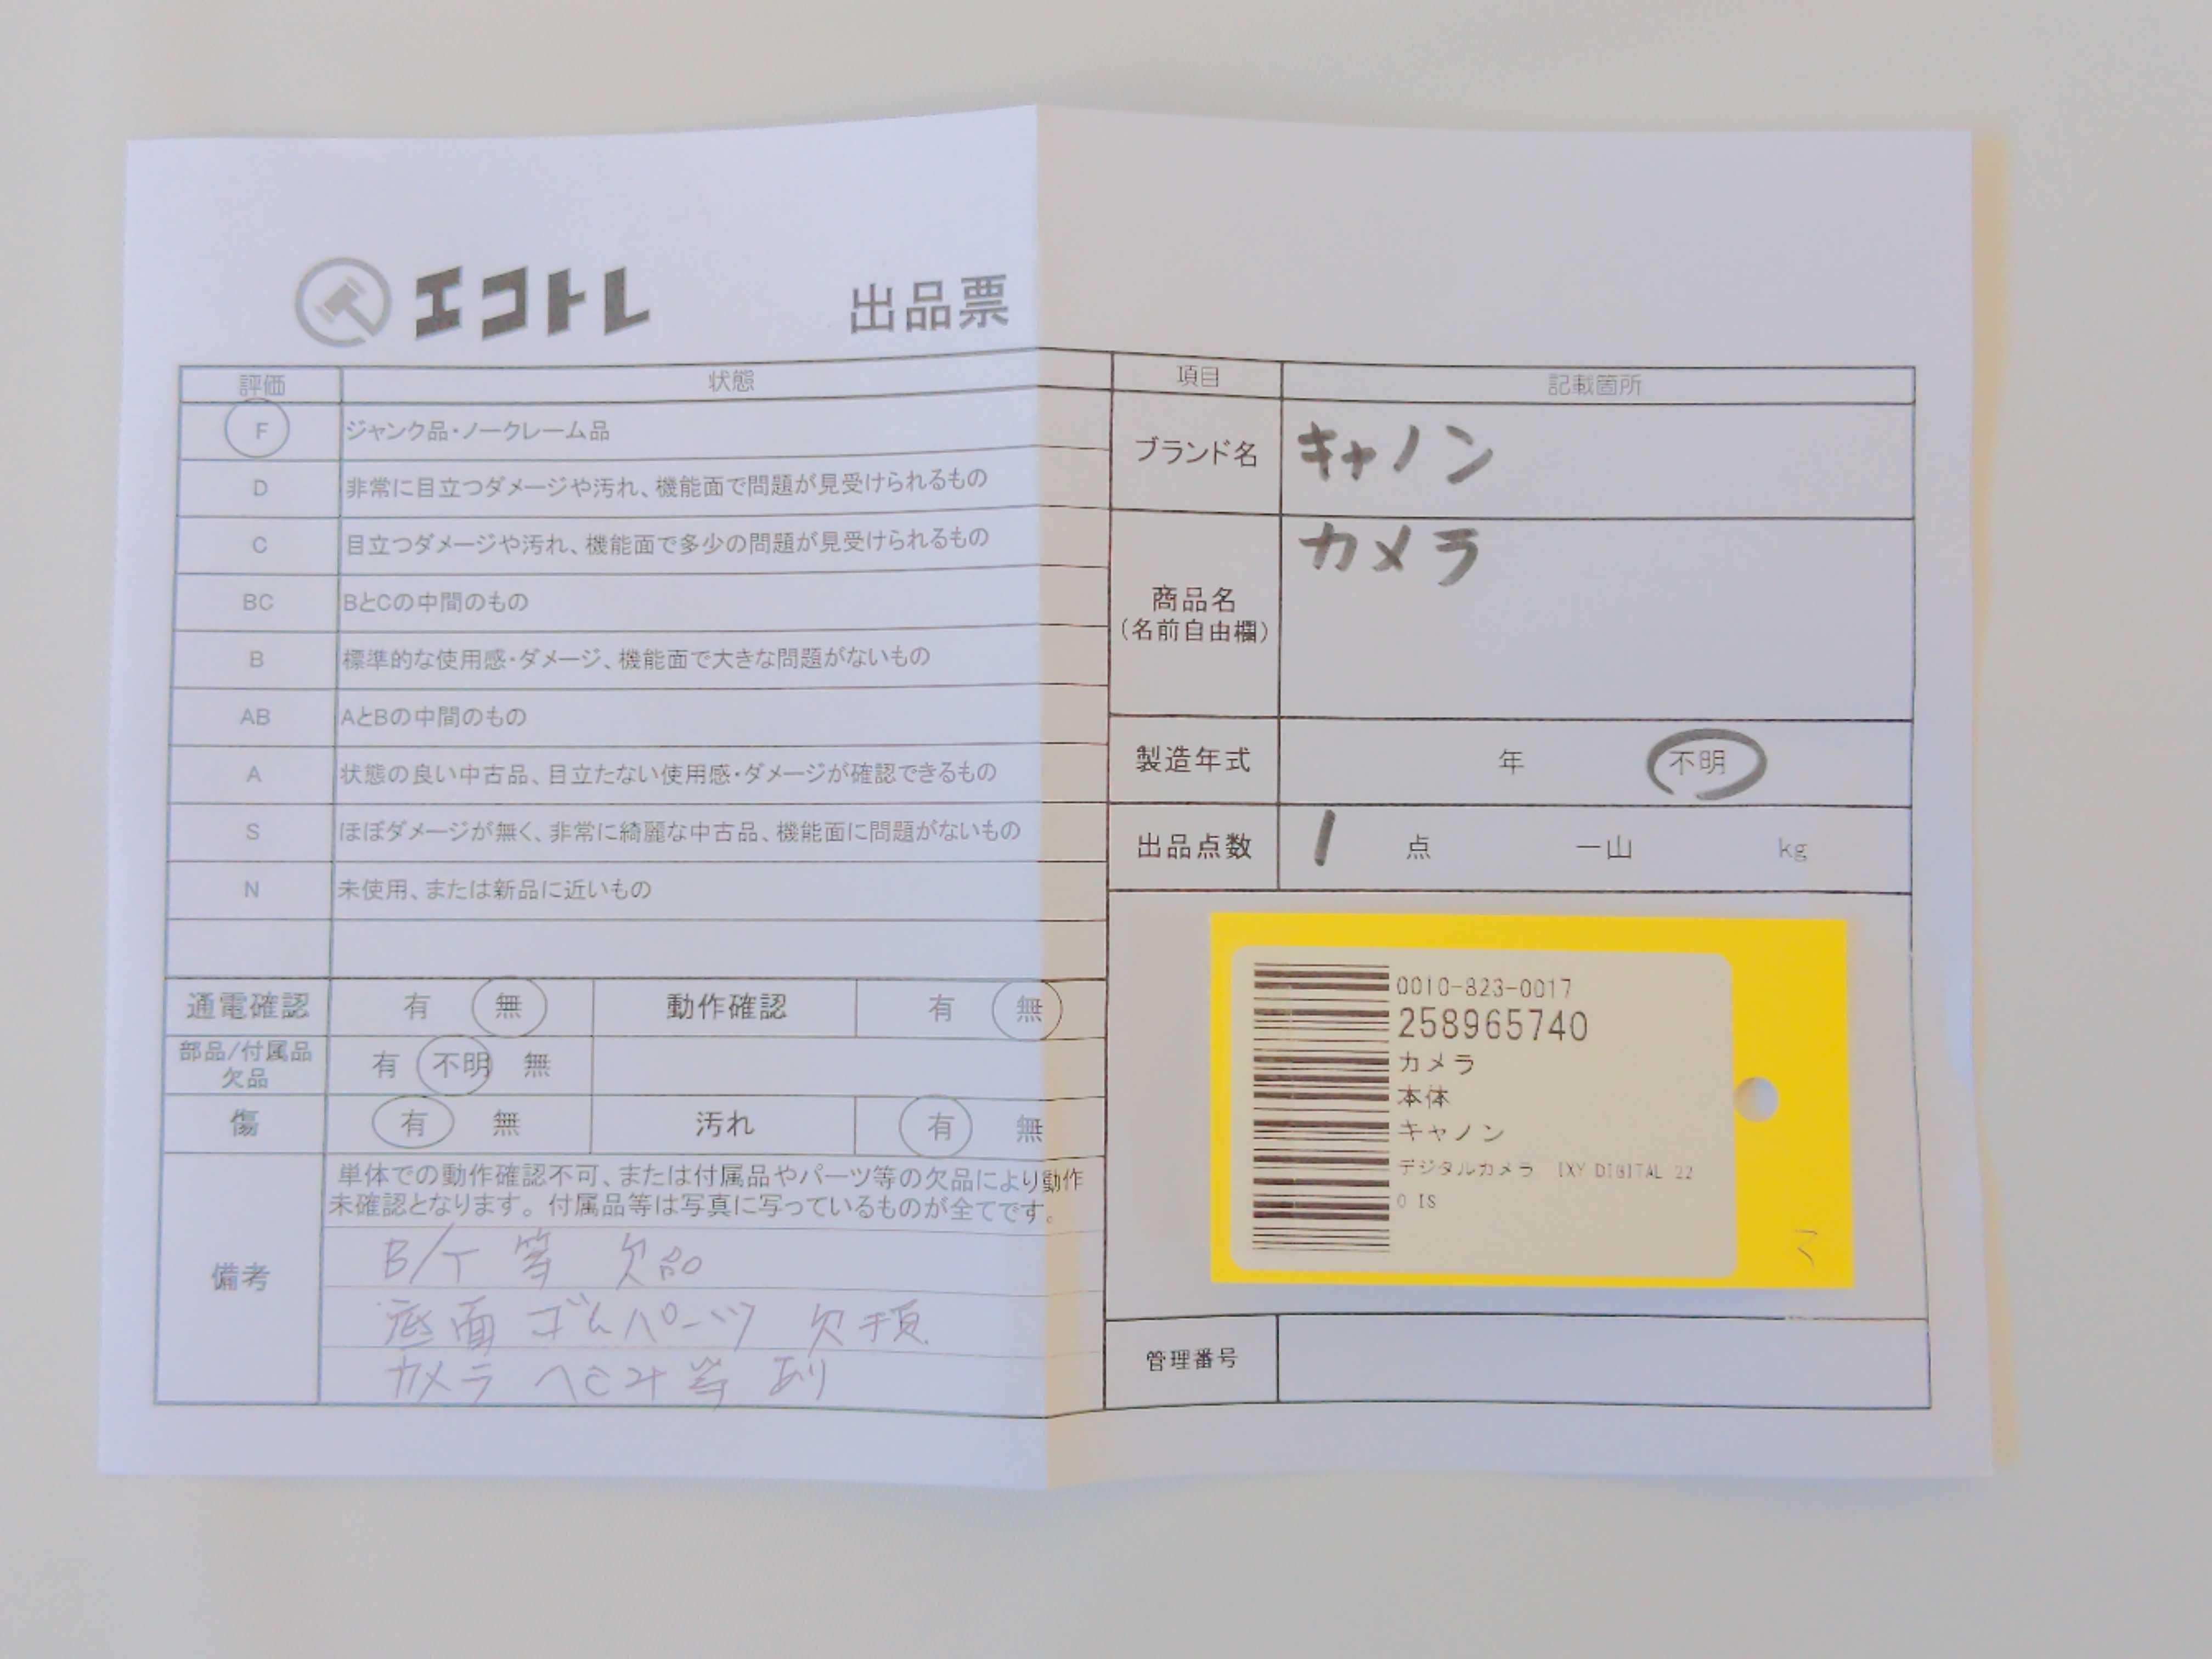 エコトレ 出品票
評価 状態
F ジャンク品・ノークレーム品
D 非常に目立つダメージや汚れ、機能面で問題が見受けられるもの
C 目立つダメージや汚れ、機能面で多少の問題が見受けられるもの
BC BとCの中間のもの
B 標準的な使用感・ダメージ、機能面で大きな問題がないもの
AB AとBの中間のもの
A 状態の良い中古品、目立たない使用感・ダメージが確認できるもの
S ほぼダメージが無く、非常に綺麗な中古品、機能面に問題がないもの
N 未使用、または新品に近いもの
通電確認 有 無 動作確認 有 無
部品/付属品
欠品 有 不明 無
傷 有 無 汚れ 有 無
備考
単体での動作確認不可、または付属品やパーツ等の欠品により動作
未確認となります。付属品等は写真に写っているものが全てです。
B/T 等 欠品
底面 ゴムパーツ 欠損
カメラ へこみ等 あり
項目 記載箇所
ブランド名 キャノン
商品名
(名前自由欄) カメラ
製造年式 年 不明
出品点数 1 点 一山 kg
0010-823-0017
258965740
カメラ
本体
キャノン
デジタルカメラ IXY DIGITAL 22
0 IS
管理番号